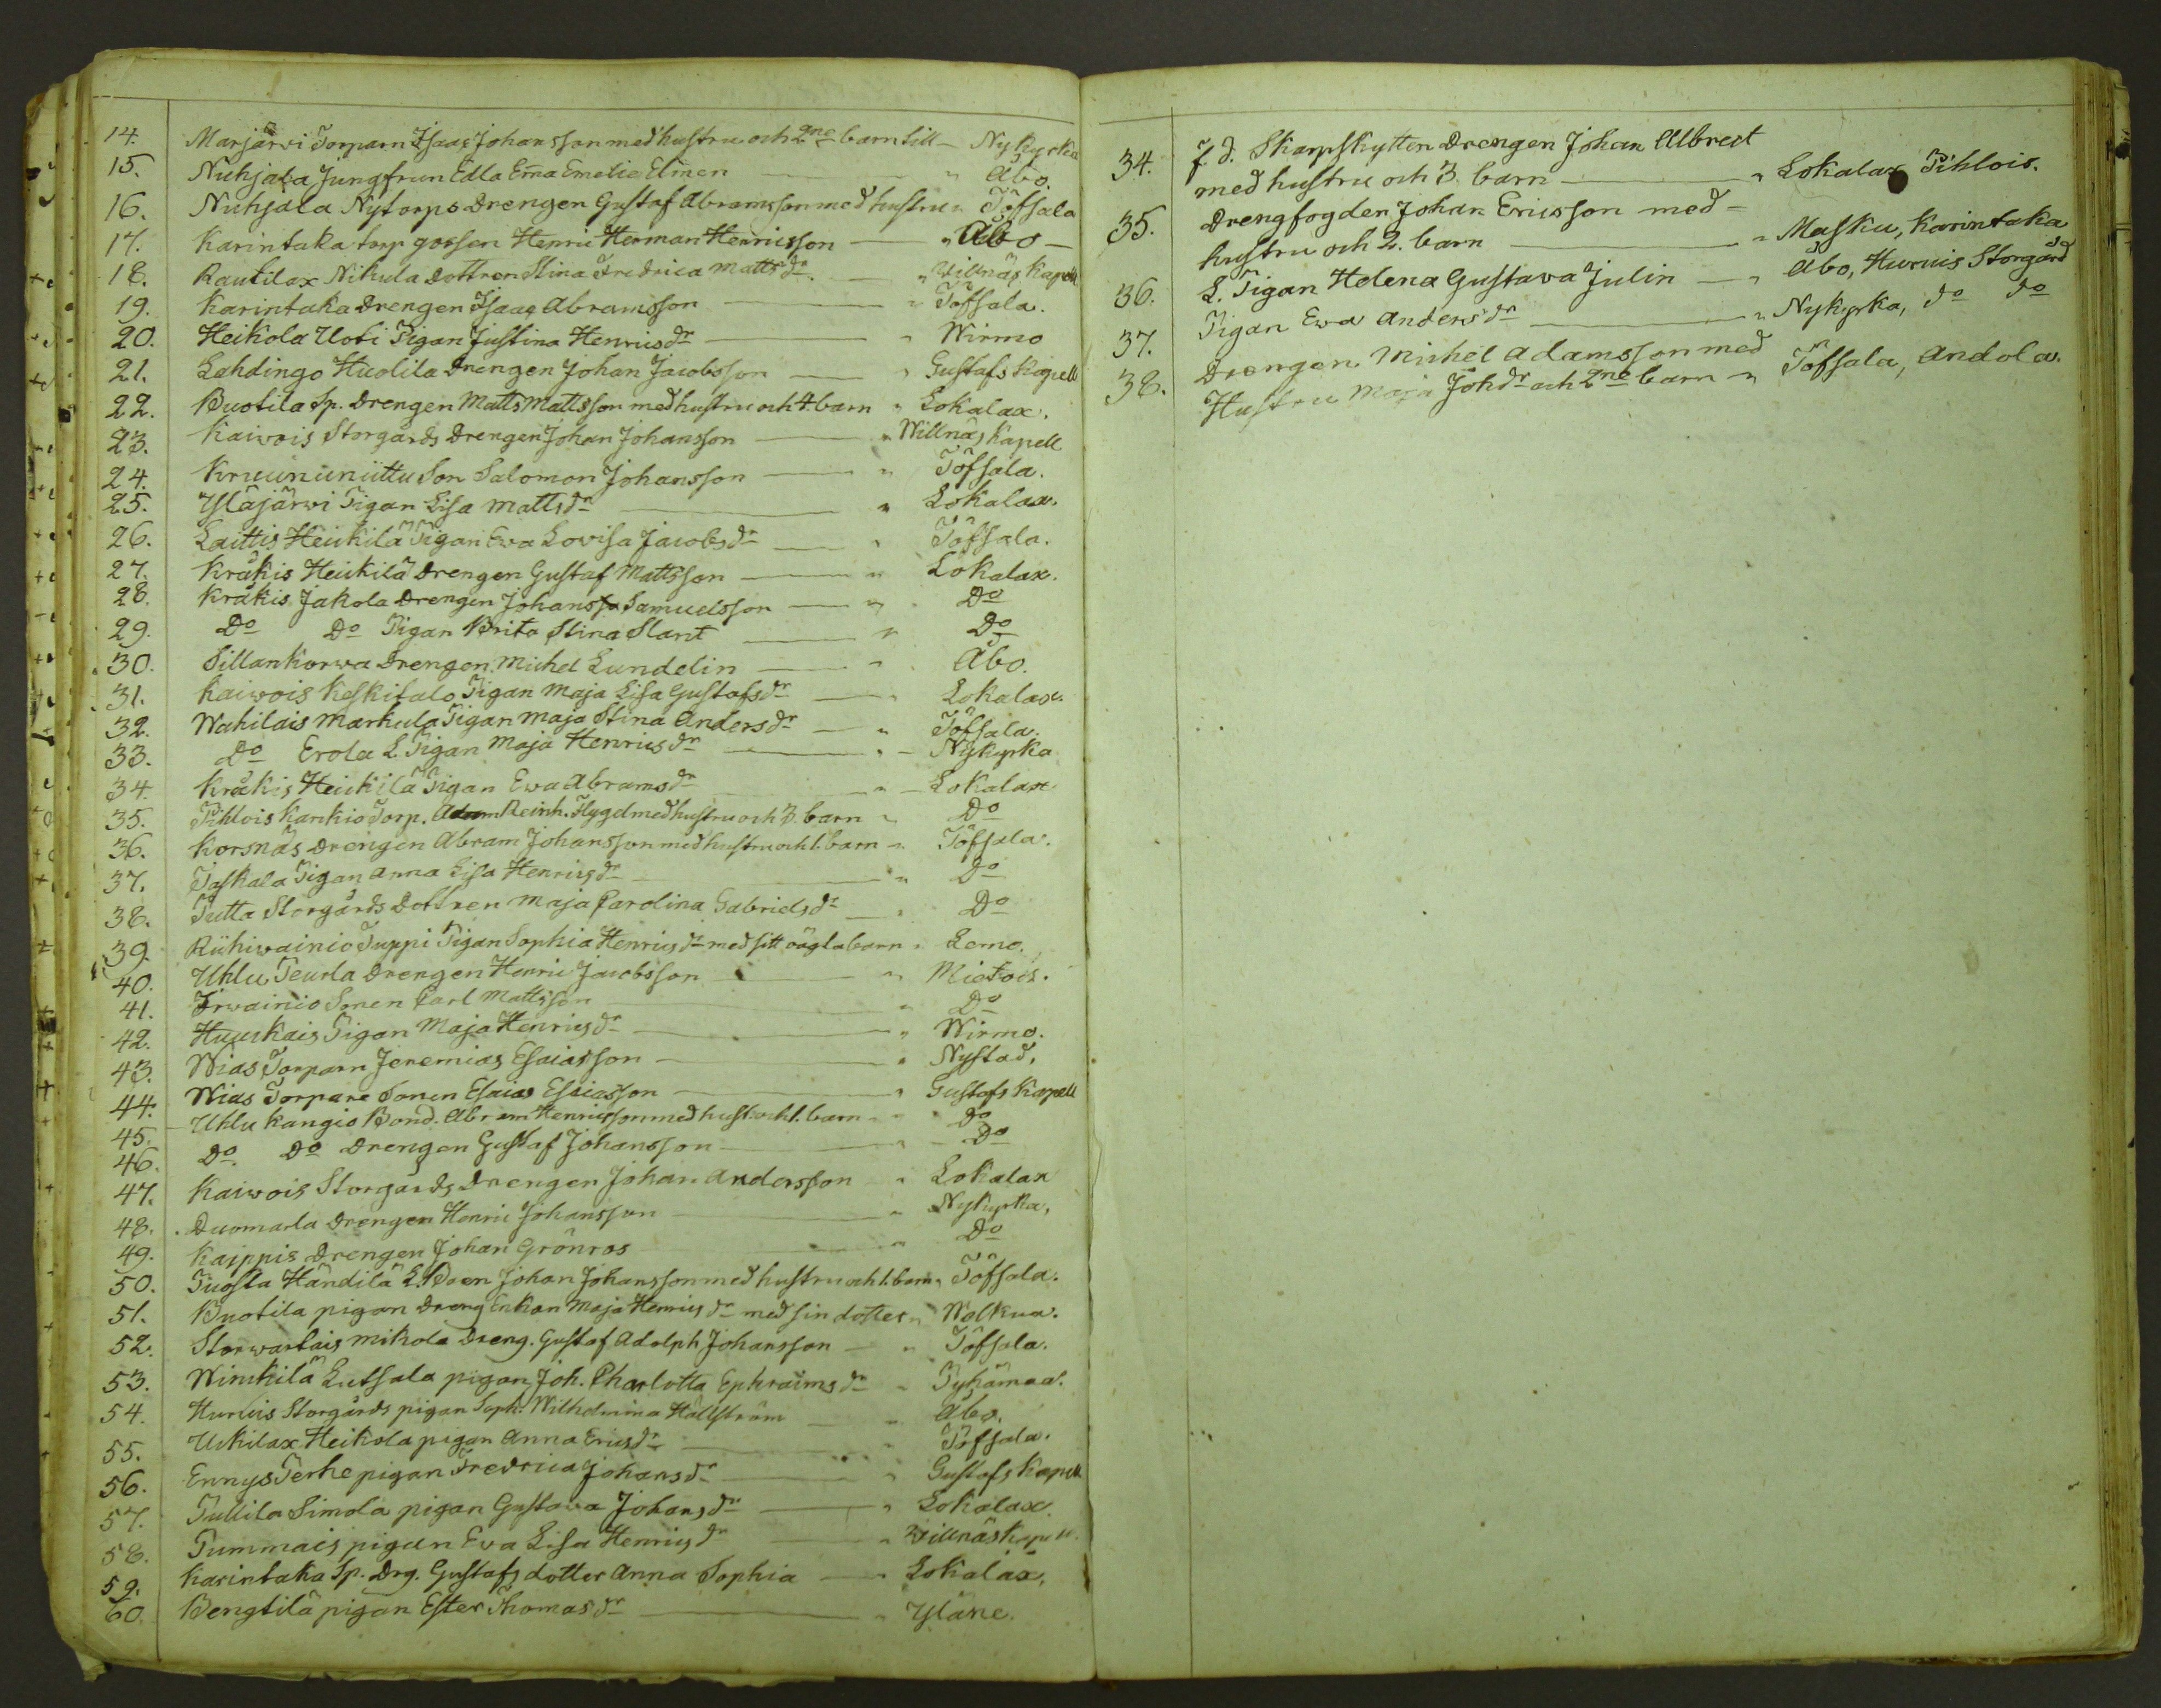 14. Marjärvi Torparn Isaac Johansson med hustru och 2ne barn till — Nykyrka
15. Nuhjala Jungfrun Edla Em̄a Emelie Elmen — " Åbo.
16. Nuhjala Nytorps Drengen Gustaf Abramsson med hustru " Töfsala
17. Karintaka torp gossen Henric Herman Henricsson — " Åbo —
18. Rautilax Nikula Dottren Stina Fredrica Mattsdr — " Willnäs Kapell
19. Karintaka Drengen Isaac Abramsson — " Töfsala.
20. Heikola Uoti Pigan Justina Henricsdr — " Wirmo
21. Lahdingo Huolila Drengen Johan Jacobsson — " Gustafs Kapell
22. Buotila Sp. Drengen Matts Mattsson med hustru och 4. barn " Lokalax.
23. Kaivois Storgårds Drengen Johan Johansson — " Willnäs Kapell
24. Kruununiittu Son Salomon Johansson — " Töfsala.
25. Yläjärvi Pigan Lisa Mattsdr — " Lokalax.
26. Lauttis Heikilä Pigan Eva Lovisa Jacobsdr — " Töfsala.
27. Kråkis Heikilä Drengen Gustaf Mattsson — " Lokalax.
28. Kråkis Jakola Drengen Johan Samuelsson — " Do
29. Do Do Pigan Brita Stina Slant — " Do
30. Sillankorwa Drengen Michel Lundelin — " Åbo.
31. Kaivois Keskitalo Pigan Maja Lisa Gustafsdr — " Lokalax.
32. Wahilais Markula Pigan Maja Stina Andersdr — " Töfsala.
33. Do Erola L. Pigan Maja Henricsdr — " Nykyrka
34. Kråkis Heikilä Pigan Ewa Abramsdr — " Lokalax
35. Pihlois Kankio Torp. Adam Reinh. Flygel med hustru och 3. barn " Do
36. Korsnäs Drengen Abram Johansson med hustru och 1. barn " Töfsala.
37. Paskala Pigan Anna Lisa Henricsdr — " Do
38. Putta Storgårds Dottren Maja Carolina Gabrielsdr — " Do
39. Riihivainio Tuppi Pigan Sophia Henricsdr med sitt oägta barn " Lemo.
40. Uhlu Teurla Drengen Henric Jacobsson — " Mietois.
41. Irwainio Sonen Carl Mattsson — " Do
42. Huukais Pigan Maja Henricsdr — " Wirmo.
43. Wias Torparn Jeremias Esaiasson — " Nystad.
44. Wias Torpare Sonen Esaias Esaiasson — " Gustafs Kapell
45. Uhlu Kangio Bond. Abram Henricsson med hust. och 1. barn " Do
46. Do Do Drengen Gustaf Johansson — " Do
47. Kaivois Storgårds Drengen Johan Andersson " Lokalax
48. Duomarla Drengen Henric Johansson — " Nykyrka.
49. Kaippis Drengen Johan Grönros — " Do
50. Tuosta Händilä L. Boen Johan Johansson med hustru och 1. barn " Töfsala.
51. Buotila pigan Dreng Enkan Maja Henricsdr med sin dotter " Wolkua.
52. Storwartais Mikola Dreng. Gustaf Adolph Johansson — " Töfsala.
53. Winikilä Lutsala pigan Joh. Charlotta Ephraimsdr " Pyhämaa.
54. Huruis Storgårds pigan Soph. Wilhelmina Hällström — " Åbo.
55. Ukilax Heikola pigan Anna Ericsdr — " Töfsala.
56. Ennys Perhe pigan Fredrica Johansdr — " Gustafs Kapell
57. Tullila Simola pigan Gustava Johansdr — " Lokalax
58. Tummais pigan Eva Lisa Henricsdr — " Willnäs Kapell.
59. Karintaka Sp. Drg. Gustafs dotter Anna Sophia — " Lokalax,
60. Bengtilä pigan Ester Thomasdr — " Yläne.
34. F. d. Skarpskytten Drengen Johan Albrect
med hustru och 3. barn — " Lokalax Pihlois.
35. Drengfogden Johan Ericsson med —
hustru och 2. barn — " Masku, Karintaka
36. L. Pigan Helena Gustava Julin — " Åbo, Huruis Storgård
37. Pigan Ewa Andersdr — " Nykyrka, do do
38. Drengen Michel Adamsson med
Hustru Maja Johdr och 2ne barn — " Töfsala, Andola.